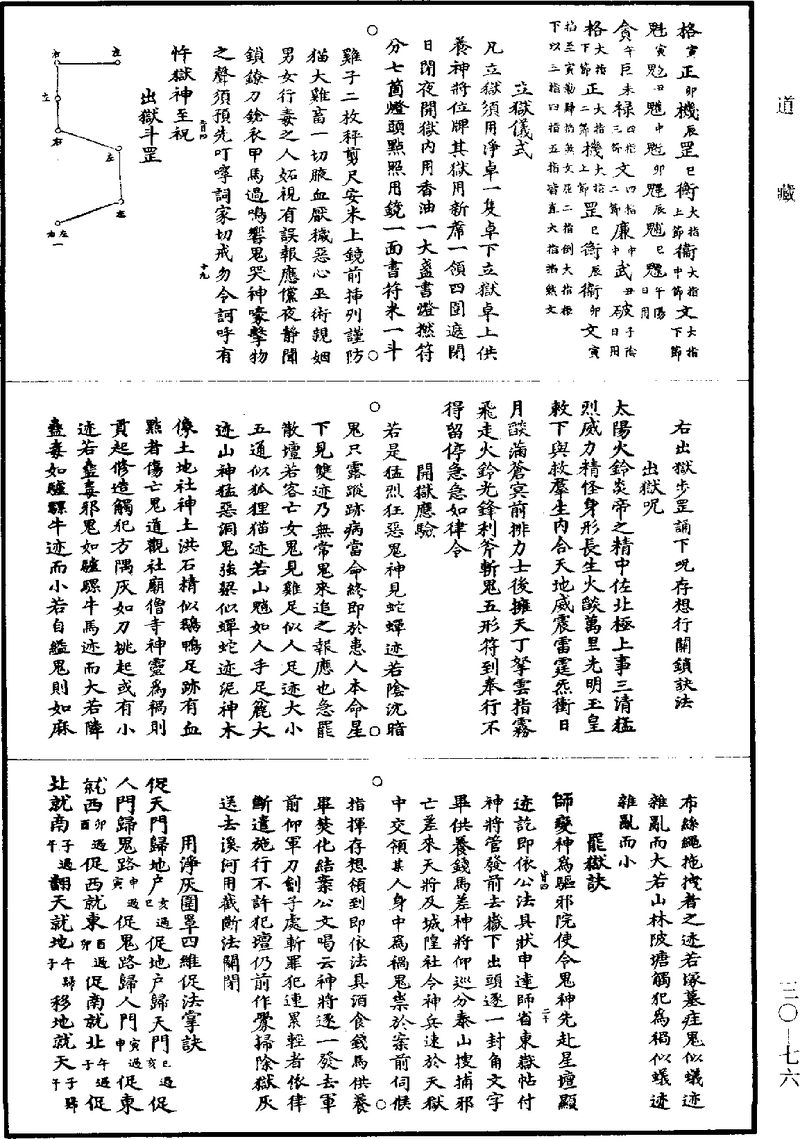 道藏
三〇—七六
格寅正卯機辰罡巳衛大指上節衛大指中節文大指下節
魁寅𩲃丑䰢中魒卯魓辰䰢巳魒午陽日用
立獄儀式
凡立獄須用淨卓一隻卓下立獄卓上供
養神將位牌其獄用新席一領四圍遮閉
日閉夜開獄內用香油一大盞書燈撚符
分七箇燈頭點照用鏡一面書符米一斗
雞子二枚秤剪尺安米上鏡前揷列謹防
猫犬雞畜一切腋血厭穢惡心巫術親姻
男女行毒之人妬視有誤報應儻夜靜聞
鎖鐐刀鎗衣甲馬過鳴響鬼哭神嚎擊物
之聲須預先叮嚀詞家切戒勿令訶呼有
忤獄神至祝
出獄斗罡
右出獄步罡誦下呪存想行關鎖訣法
出獄呪
太陽火鈴炎帝之精中佐北極上事三清猛
烈威力精怪身形長生火䦨萬里光明玉皇
敕下與救羣生內合天地威震雷霆炁衝日
月燄滿蒼冥前排力士後擁天丁拏雲指霧
飛走火鈴光鋒利斧斬鬼五形符到奉行不
得留停急急如律令
開獄應驗
若是猛烈狂惡鬼神見蛇蟬迹若陰沈暗
鬼只露蹤跡病當命終即於患人本命星
下見雙迹乃無常鬼來追之報應也急罷
散壇若客亡女鬼見雞足似人足迹大小
五通似狐狸猫迹若山魈如人手足麄大
迹山神猛惡洞鬼強梁似蟬蛇迹泥神木
像土地社神土洪石精似鵝鴨足跡有血
點者傷亡鬼道觀社廟僧寺神靈爲禍則
貫起修造觸犯方隅灰如刀挑起或有小
迹若蠱毒邪鬼如驢騾牛馬迹而大若隣
蠱毒如驢騾牛迹而小若自縊鬼則如麻
布絲繩拖拽者之迹若塚墓疰鬼似蟻迹
雜亂而大若山林陂塘觸犯爲禍似蟻迹
雜亂而小
罷獄訣
師變神爲驅邪院使令鬼神先赴星壇顯
迹訖即依公法具狀申達師省東嶽帖付
神將管發前去嶽下出頭逐一封角文字
畢供養錢馬差神將仰巡分泰山搜捕邪
亡差來天將及城隍社令神兵速於天獄
中交領某人身中爲禍鬼祟於案前伺候
指揮存想領到即依法具酒食錢馬供養
畢焚化結案公文喝云神將逐一發去軍
前仰軍刀劊子處斬罪犯連累輕者依律
斷遣施行不許犯壇仍前作釁掃除獄灰
送去溪河用截斷法關閉
用淨灰圍罩四維促法掌訣
促天門歸地户巳亥過促地户歸天門亥巳過促
人門歸鬼路寅申過促鬼路歸人門申寅過促東
就西酉卯過促西就東卯酉過促南就北子午過促
北就南午子過翻天就地子午歸移地就天午子歸